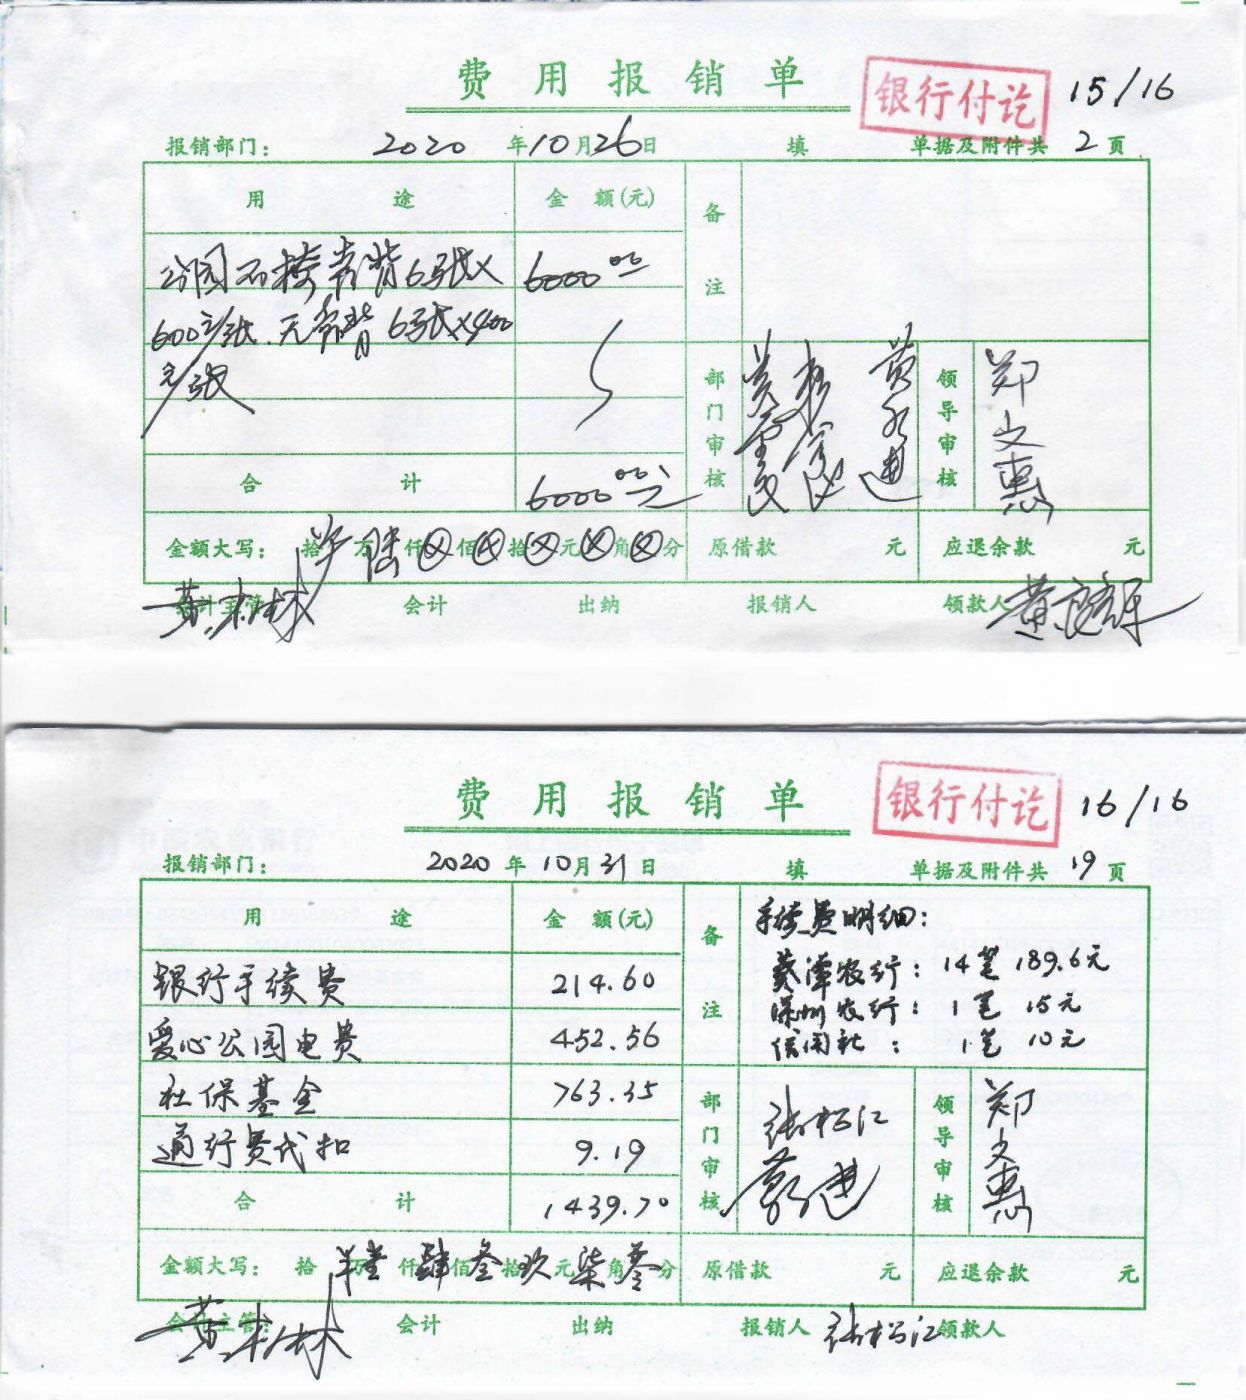 费用报销单
银行付讫
15/16
报销部门: 2020年10月26日 填 单据及附件共2页
用途 金额(元) 备注
公园石椅靠背6张x 6000 00
600元/张.无靠背6张x400
元/张
部门审核 领导审核 郑文惠
合计 6000 00元
金额大写: 拾万陆仟⊗佰⊗拾⊗元⊗角⊗分 原借款 元 应退余款 元
会计主管 会计 出纳 报销人 领款人
费用报销单
银行付讫
16/16
报销部门: 2020年10月31日 填 单据及附件共19页
用途 金额(元) 备注 手续费明细:
葵潭农行: 14笔 189.6元
银行手续费 214.60
深圳农行: 1笔 15元
信用社: 1笔 10元
爱心公园电费 452.56
社保基金 763.35
通行费代扣 9.19
部门审核 张松江 领导审核 郑文惠
合计 1439.70
金额大写: 拾万壹仟肆佰叁拾玖元柒角零分 原借款 元 应退余款 元
会计主管: 会计 出纳 报销人 张松江 领款人